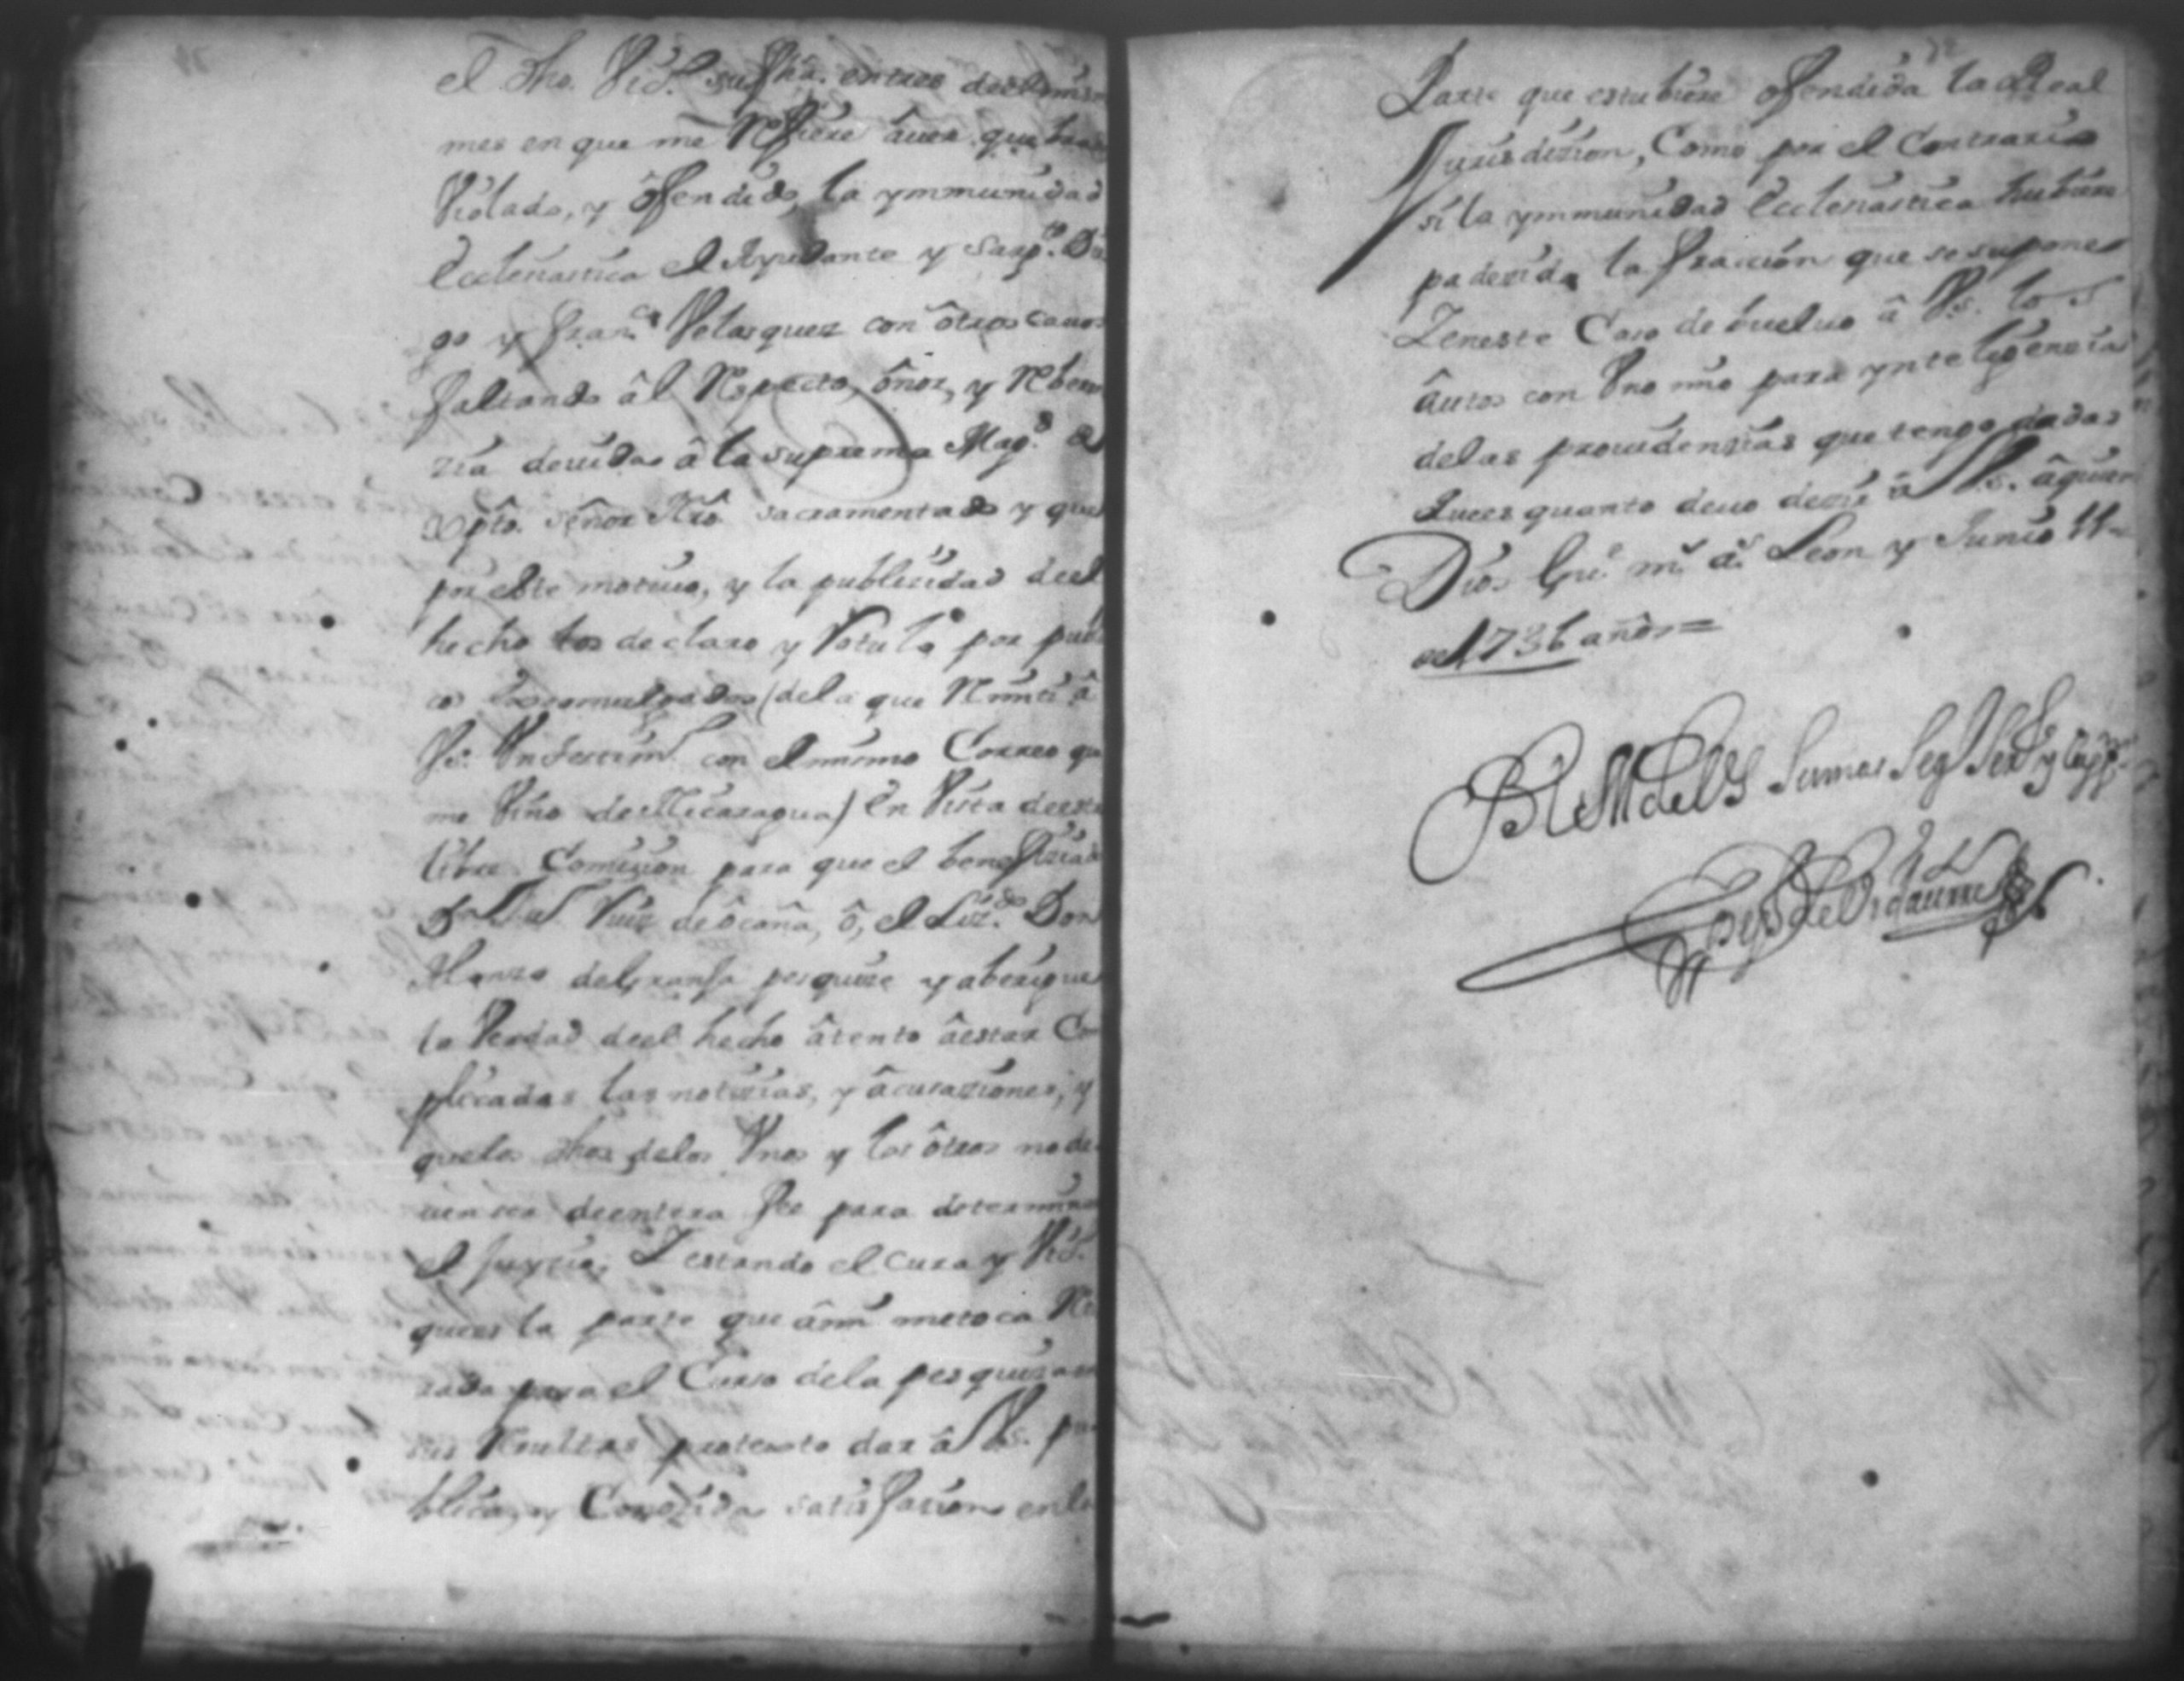 el dho. Vic.º su fha. en tres deel mismo
mes en que me Refiere âuer quebran
Violado, y ôfendido la ymmunidad
Ecclesiastica el Ayudante y Sarg.to Die
go y Fran.co Velasquez con ôtros
faltando âl Respecto, ônor, y Reberen
zia deuidas â la suprema Mag.d de
Xpto. señor Nrô. sacramentado y que
por este motiuo, y la publizidad deel
hecho los declaro y Rotulo por publi
cos Excomulgados (dela que Remiti â
Vs. Un testim.º con el mismo Correo que
me Vino de Nicaragua) En Vista de esta
libre Comision para que el benefiziado
Ruiz de ôcaña, ô, el Liz.do Don
Alonzo del granfa pesquize y aberigue
la Verdad deel hecho âtento âestar Com
plicadas las notizias, y âcusaziones, y
quelos dhos. delos Vnos y los ôtros no de
uen ser deentera fee para determinar
el juyzio; Y estando el cura y Vic.º
que es la parte que âmi me toca Re
rada para el Curso dela pesquiza
sus Resultas protexto dar â Vs. pu
blica, y Conozida satisfazion enla
Parte que estubiere ofendida la Real
Jurisdizion, Como por el Contrario
si la ymmunidad Ecclesiastica hubiere
padezido la fraccion que se supone
Y eneste Caso debueluo â Vs. los
âutos con Vno mio para ynteligencia
delas prouidenzias que tengo dadas
quees quanto deuo dezir â Vs. âquien
Dios Gu.e m.s a.s Leon y Junio 11
de 1736 años =
BLM de VS Su mas Seg.º Ser.or y Capp.n